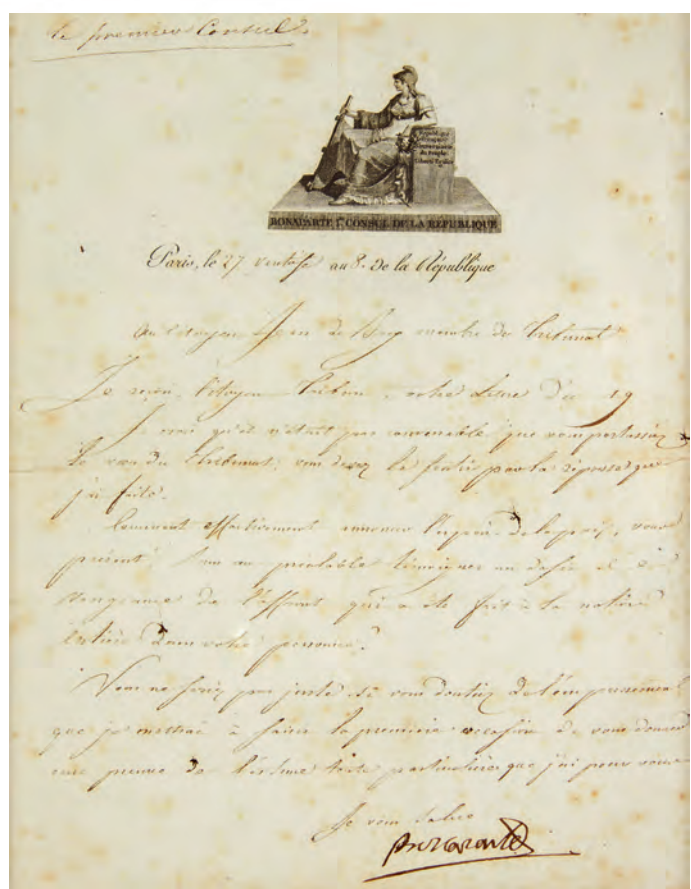 Le premier Consul.
République
française
du Peuple
BONAPARTE 1er CONSUL DE LA RÉPUBLIQUE
Paris, le 27 ventose an 8. de la République
au citoyen Jean de Bry membre du Tribunat
Je reçois, Citoyen Tribun, votre Lettre du 19
Je crois qu'il n'était pas convenable que vous portassiez
le vœu du Tribunat; vous devez le sentir par la réponse que
j'ai faite.
Comment effectivement annoncer l'espoir de la paix, vous
présent, sans au préalable témoigner un désir de
vengeance de l'affront qui a été fait à la nation
entière dans votre personne?
Vous ne seriez pas juste si vous doutiez de l'empressement
que je mettrai à saisir la première occasion de vous donner
une preuve de l'estime toute particulière que j'ai pour vous
Je vous salue
Bonaparte